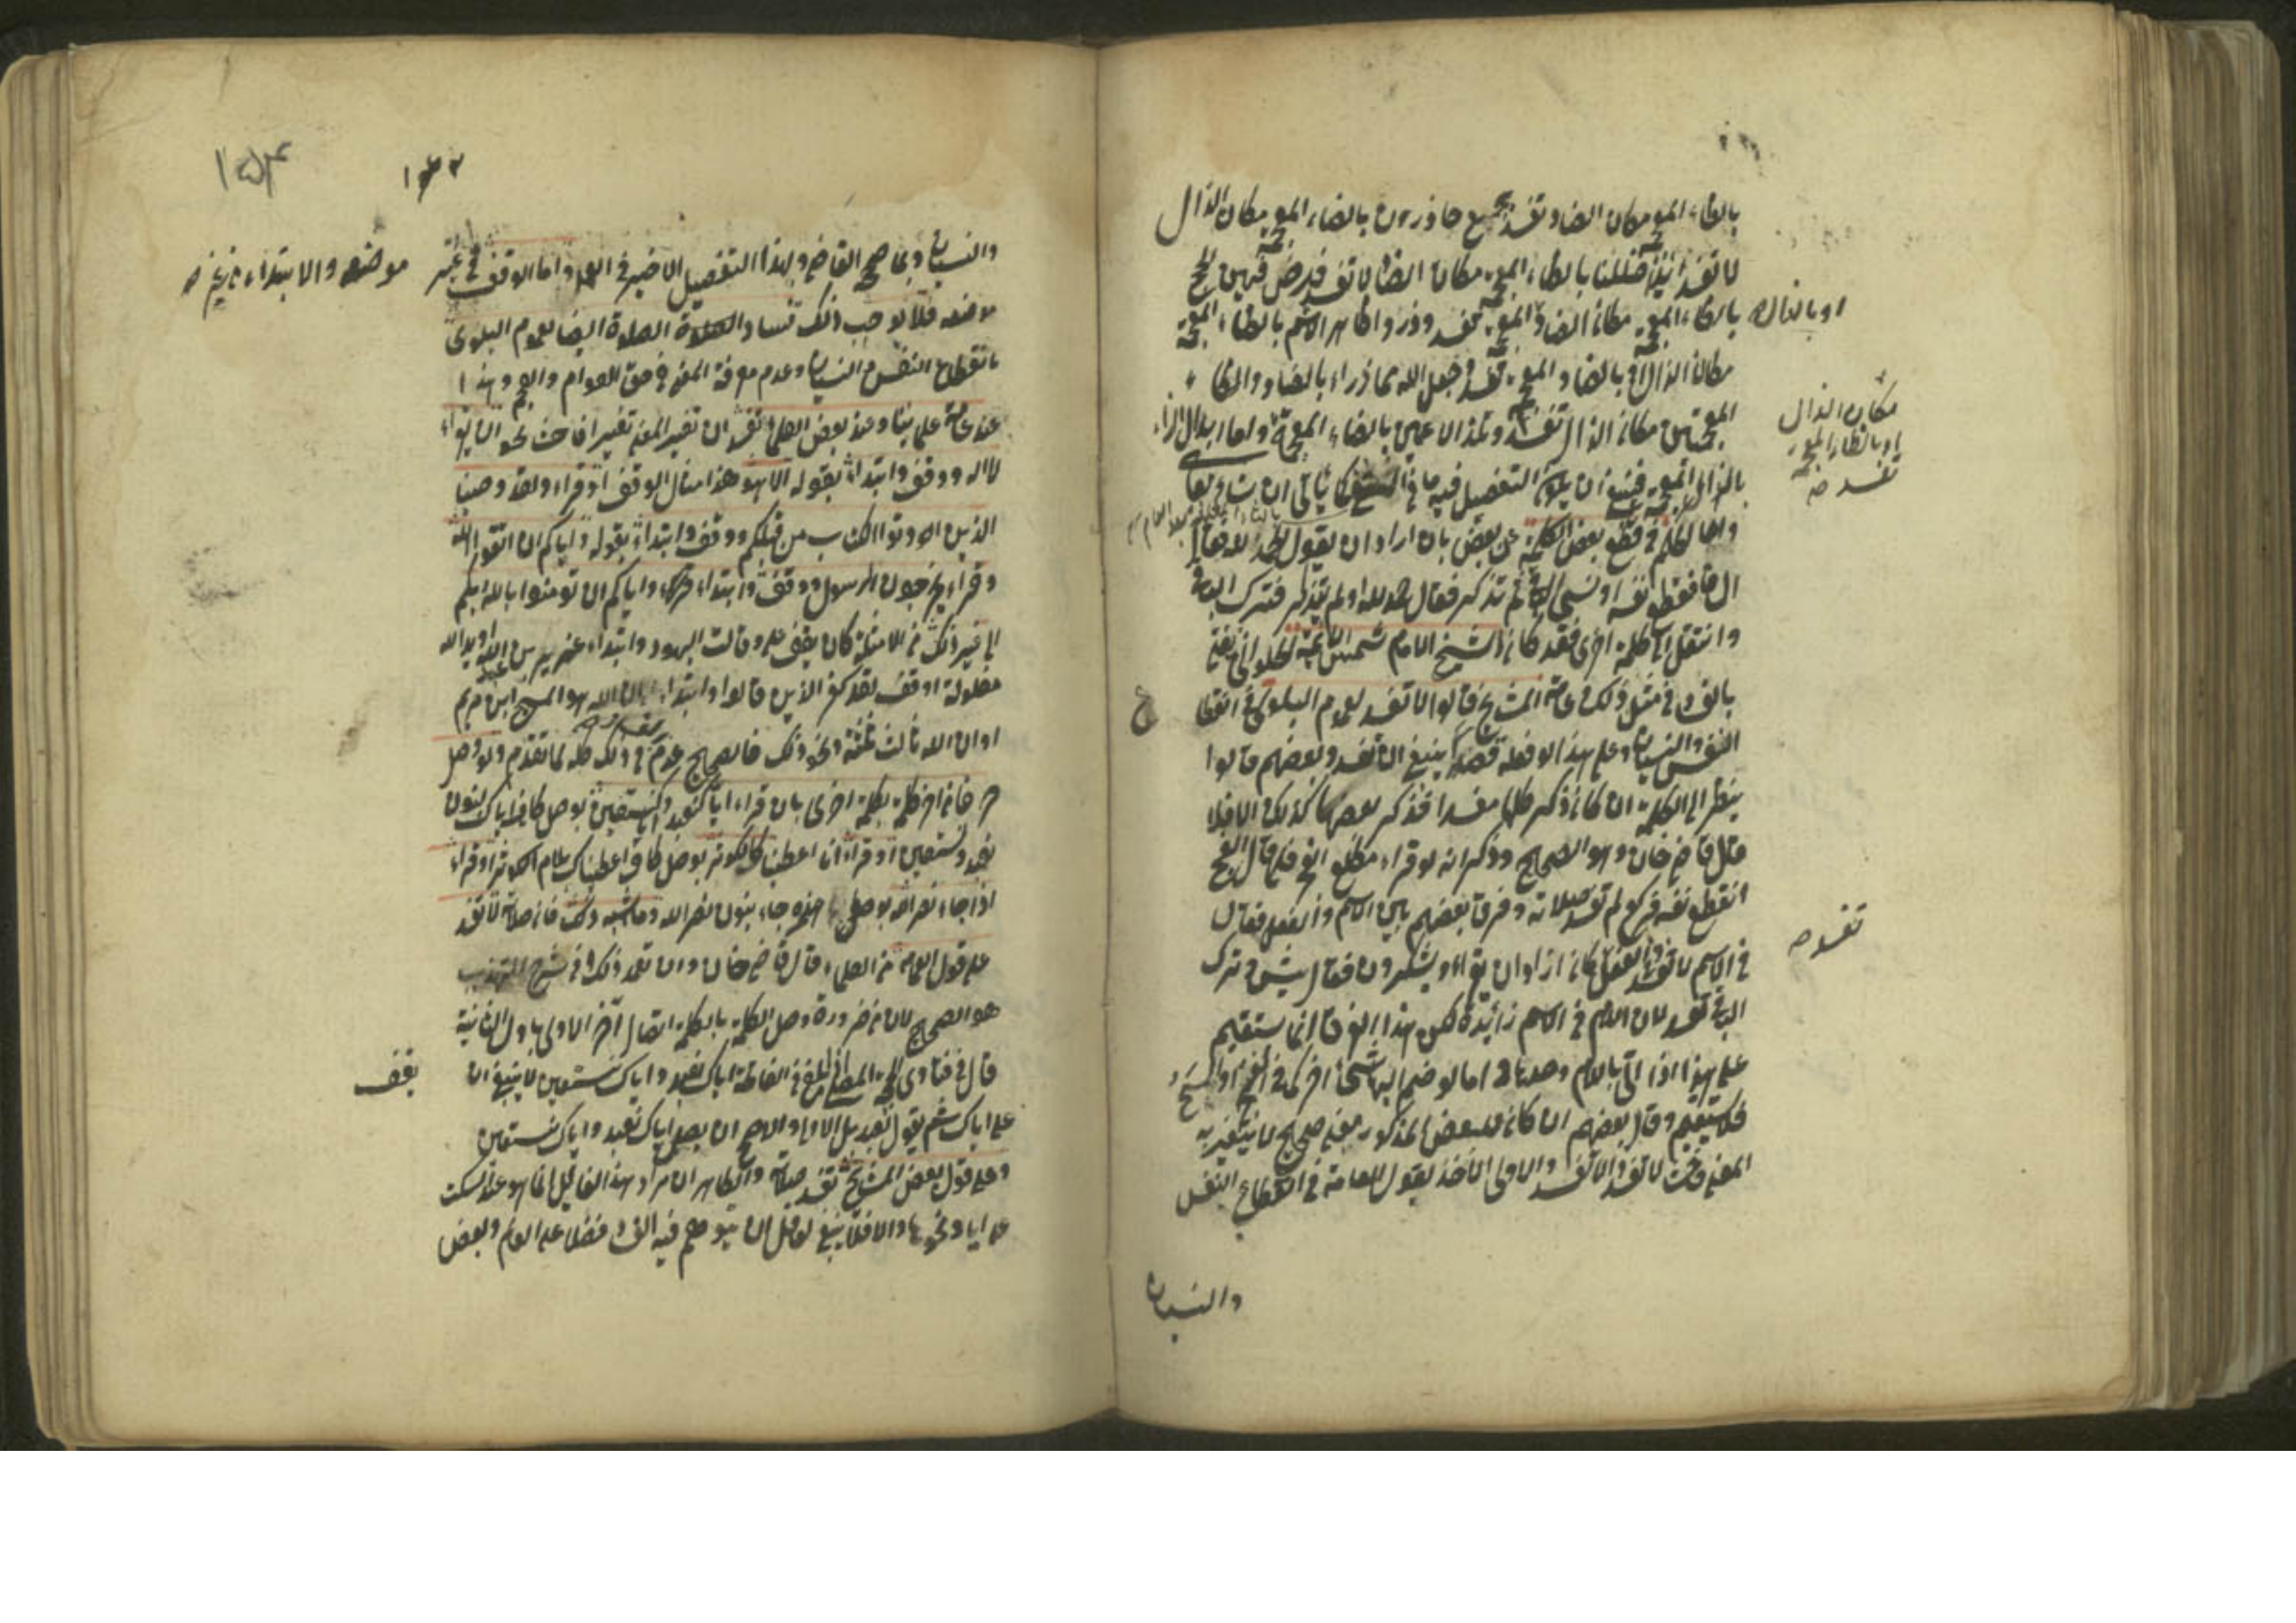 بالظاء المعجمة مكان الضاد تفسد جميع حاذرون بالضاء المعجمة مكان الذال
لا تفسد ائذا ضللنا بالظاء المعجمة مكان الضاد لا تفسد فرض فيهن الحج
او بالذال
بالظاء المعجمة مكان الضاد المعجمة تفسد وذروا ظاهر الاثم بالظاء المعجمة
مكان الذال او بالضاد المعجمة تفسد جعل الله مما ذرأ بالضاد والظاء
مكان الذال
او بالظاء المعجمة
تفسد صح
المعجمتين مكان الذال تفسد وتلذ الاعين بالضاء المعجمة واما ابدال الزاء
بالذال المعجمة فينبغي ان يكون التفصيل فيه ما في كما يأتي ان شاء تعالى
واما الحكم في قطع بعض الكلمة عن بعض بان اراد ان يقول الحمد لله فقال
ال فانقطع نفسه او نسي الباقي ثم تذكر فقال حمد لله او لم يتذكر فترك الباقي
وانتقل الى كلمة اخرى فقد كان الشيخ الامام شمس الائمة الحلواني يفتي
بالفساد في مثل ذلك وعامة المشايخ قالوا لا تفسد لعموم البلوى في انقطاع
النفس والنسيان وعلى هذا لو فعله قصدا ينبغي ان تفسد وبعضهم قالوا
ينظر الى الكلمة ان كان ذكر كلها مفسدا فذكر بعضها كذلك والا فلا
قال قاضي خان وهو الصحيح وذكر انه لو قراء مطلع الفجر فلما قال الفج
انقطع نفسه فركع لم تفسد صلاته وفرق بعضهم بين الاسم والفعل فقال
تفسد صح
في الاسم لا تفسد وفي الفعل كان اراد ان يقراء ويشكرون فقال يش وترك
الباقي تفسد لان اللام في الاسم زائدة لكن هذا الفرق انما يستقيم
على هذا اذا اتى باللام وحدها اما لو ضم اليها شيئا اخر كما في الفج او
فلا يستقيم وقال بعضهم ان كان للبعض المذكور معنى صحيح لا يتغير به
المعنى لا تفسد والا تفسد والاولى الاخذ بقول العامة في انقطاع النفس
والنسيان
١٥٤
والنسيان وبما صحح القاضي وبهذا التفصيل الاخير في العمد واما الوقف في غير
موضعه والابتداء من غيره
موضعه فلا يوجب ذلك فساد الصلوة ايضا لعموم البلوى
بانقطاع النفس والنسيان وعدم معرفة المعنى في حق العوام والعجم وهذا
عند عامة علمائنا وعند بعض العلماء تفسد ان تغير المعنى تغيرا فاحشا نحو ان يقراء
لا اله ووقف وابتداء بقوله الا هو هذا مثال الوقف او قراء ولقد وصينا
الذين اوتوا الكتاب من قبلكم ووقف وابتداء بقوله واياكم ان اتقوا الله
او قراء يخرجون الرسول ووقف وابتداء واياكم ان تؤمنوا بالله ربكم
الى غير ذلك من الامثلة كان يقف على وقالت اليهود وابتداء عزير بن الله او يد الله
مغلولة او قف لقد كفر الذين قالوا وابتداء ان الله هو المسيح ابن مريم
او ان الله ثالث ثلثة ونحو ذلك فالصحيح عدم في ذلك كله لما تقدم ولو وصل
حرفا من اخر كلمة بكلمة اخرى بان قراء اياك نعبد واياك نستعين بوصل كاف اياك بنون
نعبد ونستعين او قراء انا اعطيناك الكوثر بوصل كاف اعطيناك بلام الكوثر او قراء
اذا جاء نصر الله بوصل همزه جاء بنون نصر الله وما اشبه ذلك فان صلاته لا تفسد
على قول العامة من العلماء قال قاضي خان وان تعمد ذلك وفي شرح التهذيب
هو الصحيح لان من ضرورة وصل الكلمة بالكلمة اتصال آخر الاولى باول الثانية
قال في فتاوى الحجة المصلي اذا بلغ في الفاتحة اياك نعبد واياك نستعين لا ينبغي ان
يقف
على اياك ثم يقول نعبد بل الاولى والاصح ان يصل اياك نعبد واياك نستعين
وعلى قول بعض المشايخ تفسد صلاته والظاهر ان مراد هذا القائل انما هو عند السكت
على ايا ونحوها والا فلا ينبغي لعاقل ان يتوهم فيه الفساد فضلا عن العالم وبعض